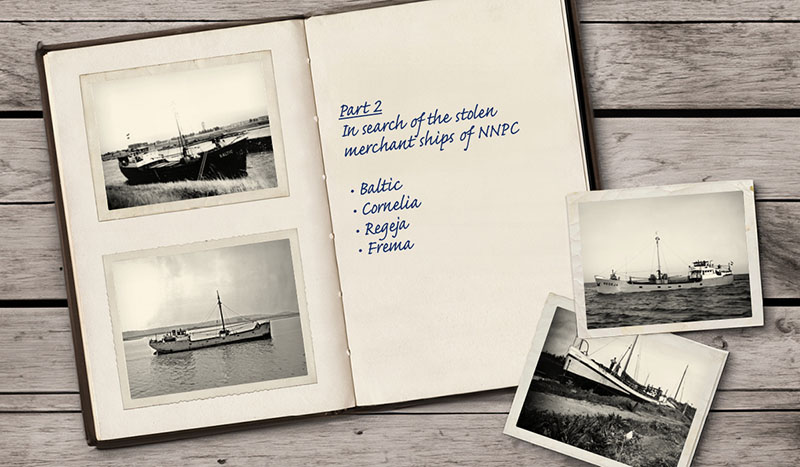 Part 2
In search of the stolen
merchant ships of NNPC
• Baltic
• Cornelia
• Regeja
• Frema